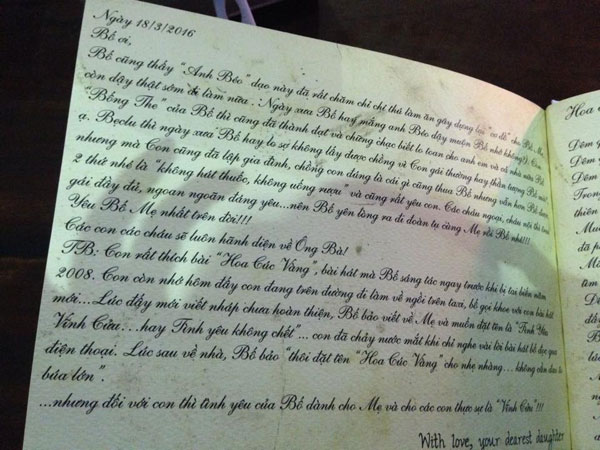 Ngày 18/3/2016
Bố ơi,
Bố cũng thấy "Anh Béo" dạo này đã rất chăm chỉ chí thú làm ăn gây dựng lại "cơ đồ" cho Bố Mẹ,
còn dậy thật sớm đi làm nữa. Ngày xưa Bố hay mắng anh Béo dậy muộn Bố nhớ không? Còn
"Bống The" của Bố thì cũng đã thành đạt và chững chạc biết lo toan cho anh em và cả nhà nữa Bố
ạ. Beclu thì ngày xưa Bố hay lo sợ không lấy được chồng vì Con gái thường hay thần tượng Bố mình
nhưng mà Con cũng đã lập gia đình, chồng con đúng là cái gì cũng thua Bố nhưng vẫn hơn Bố được
2 thứ nhé là "không hút thuốc, không uống rượu" và cũng rất yêu con. Các cháu ngoại, cháu nội thì trai
gái đầy đủ, ngoan ngoãn đáng yêu...nên Bố yên lòng ra đi đoàn tụ cùng Mẹ rồi Bố nhé!!!
Yêu Bố Mẹ nhất trên đời!!!
Các con các cháu sẽ luôn hãnh diện về Ông Bà!
TB: Con rất thích bài "Hoa Cúc Vàng", bài hát mà Bố sáng tác ngay trước khi bị tai biến năm
2008. Con còn nhớ hôm đấy con đang trên đường đi làm về ngồi trên taxi, bố gọi khoe với con bài hát
mới...Lúc đấy mới viết nháp chưa hoàn thiện, Bố bảo viết về Mẹ và muốn đặt tên là "Tình Yêu
Vĩnh Cửu...hay Tình yêu không chết"... con đã chảy nước mắt khi chỉ nghe vài lời bài hát bố đọc qua
điện thoại. Lúc sau về nhà, Bố bảo "thôi đặt tên "Hoa Cúc Vàng" cho nhẹ nhàng... không cần dao to
búa lớn".
...nhưng đối với con thì tình yêu của Bố dành cho Mẹ và cho các con thực sự là "Vĩnh Cửu"!!!
With love, your dearest daughter
Hoa
Đêm
Đêm
Đêm
Trong
thiên
Muôn
đã
Mùa